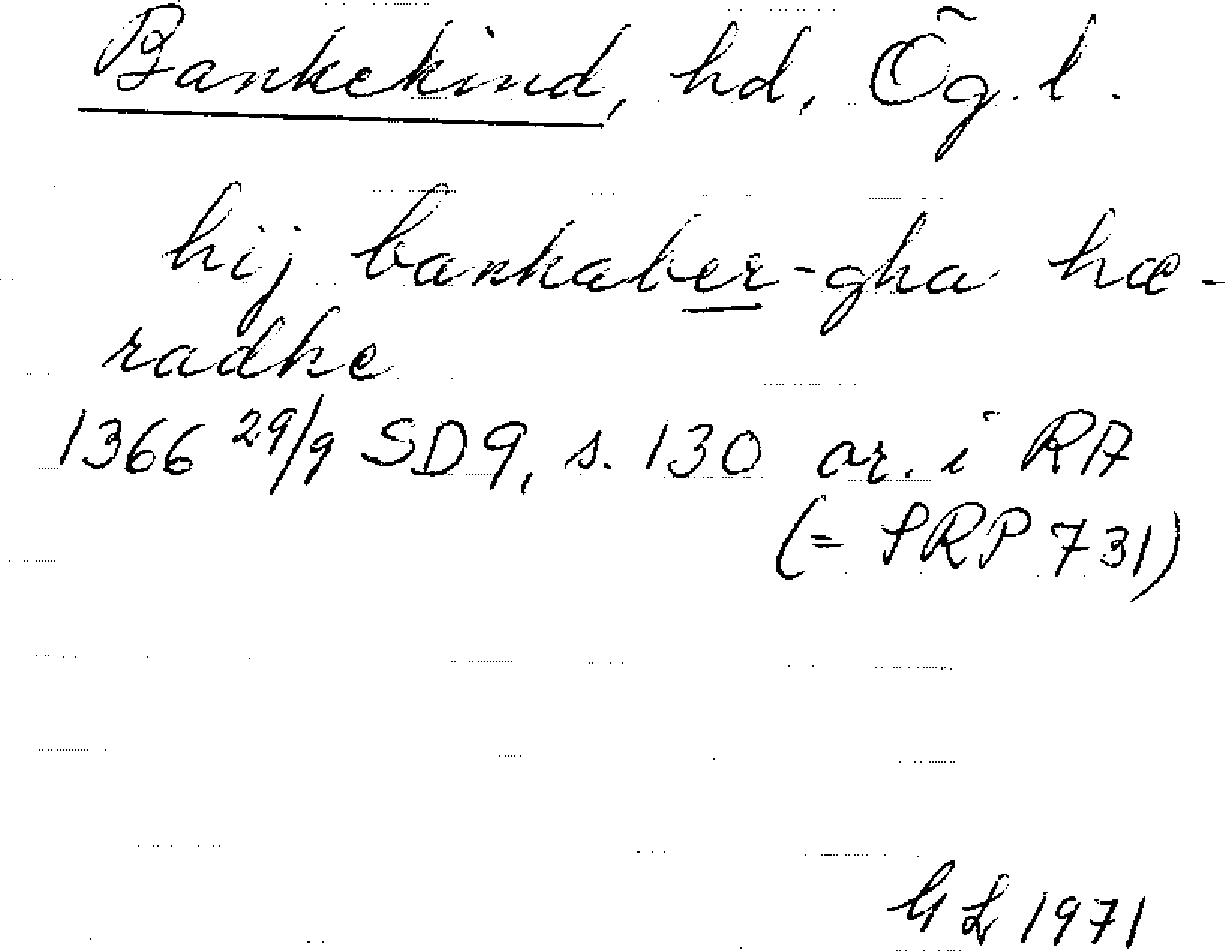 Bankekind, hd, Ög. l.
hij bankaber-gha hæ-
radhe
1366 29/9 SD 9, s. 130 or. i RA
(= SRP 731)
GL 1971